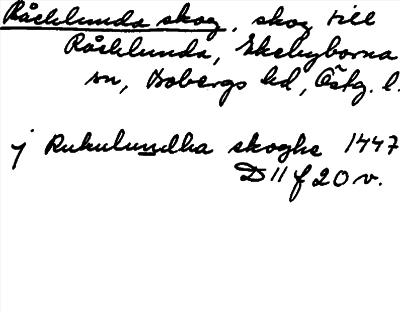 Råcklunda skog, skog till
Råcklunda, Ekebyborna
sn, Bobergs hd, Östg. l.
j Rukulundha skoghe 1447
D 11 f 20 v.